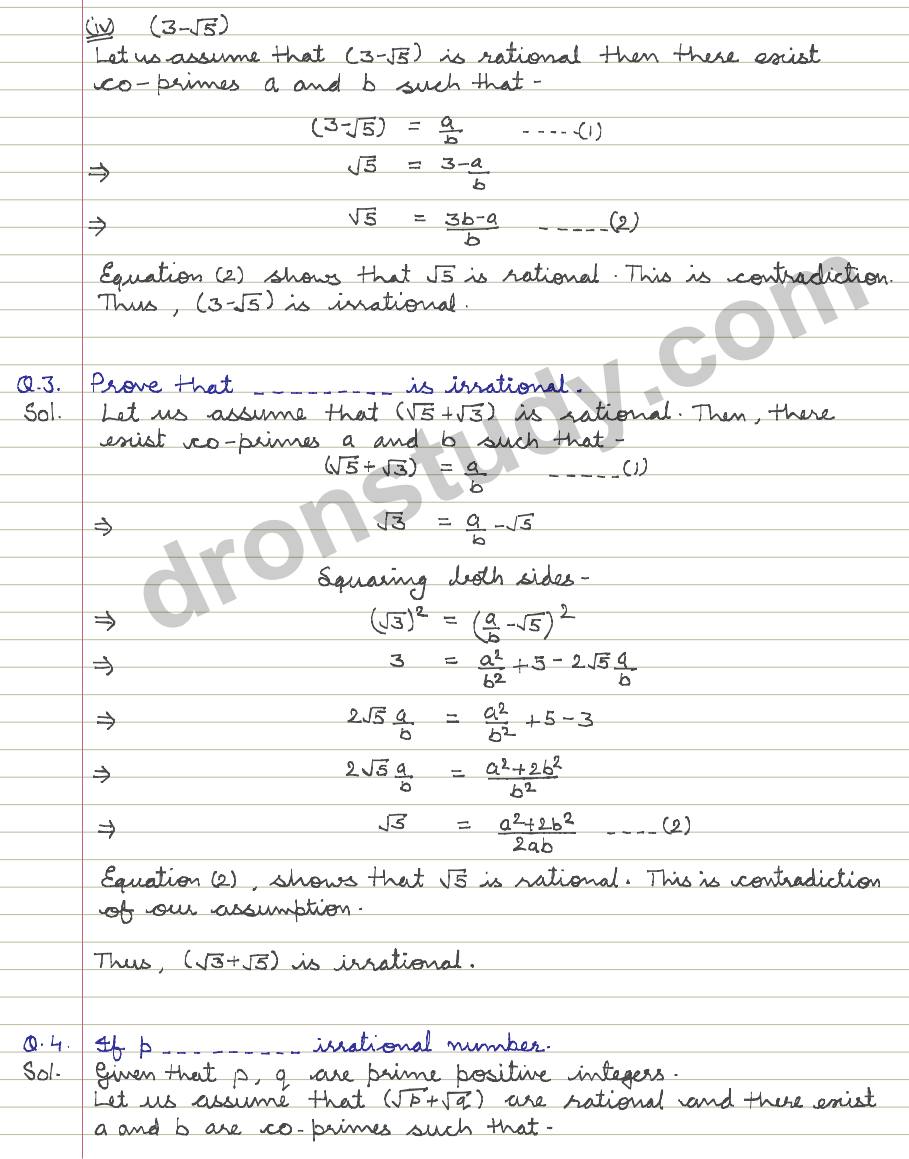 (iv) (3-√5)
Let us assume that (3-√5) is rational then there exist
co-primes a and b such that -
(3-√5) = a/b -----(1)
⇒ √5 = 3-a/b
⇒ √5 = (3b-a)/b -----(2)
Equation (2) shows that √5 is rational. This is contradiction.
Thus, (3-√5) is irrational.
Q.3. Prove that --------- is irrational.
Sol. Let us assume that (√5+√3) is rational. Then, there
exist co-primes a and b such that -
(√5+√3) = a/b -----(1)
⇒ √3 = a/b -√5
Squaring both sides -
⇒ (√3)² = (a/b -√5)²
⇒ 3 = a²/b² + 5 - 2√5 a/b
⇒ 2√5 a/b = a²/b² + 5 - 3
⇒ 2√5 a/b = (a²+2b²)/b²
⇒ √5 = (a²+2b²)/2ab ----(2)
Equation (2), shows that √5 is rational. This is contradiction
of our assumption.
Thus, (√3+√5) is irrational.
Q.4. If p --------- irrational number.
Sol. Given that p, q are prime positive integers.
Let us assume that (√p+√q) are rational and there exist
a and b are co-primes such that -
dronstudy.com